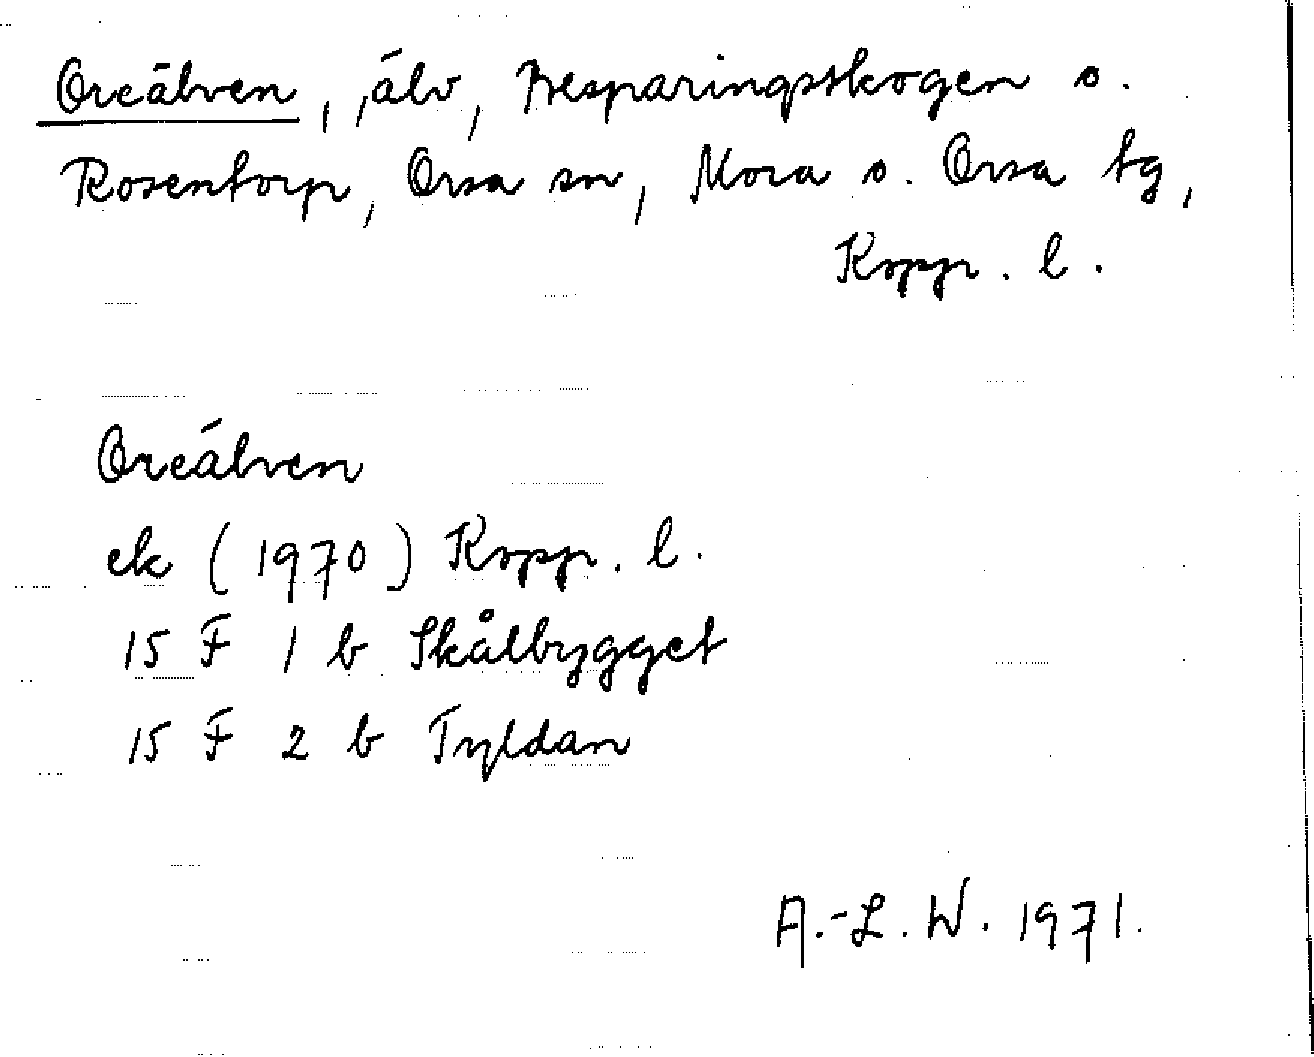 Oreälven, älv, Besparingsskogen o.
Rosentorp, Orsa sn, Mora o. Orsa tg,
Kopp. l.
Oreälven
ek (1970) Kopp. l.
15 F 1 b Skålbygget
15 F 2 b Tyldan
A.-L. W. 1971.